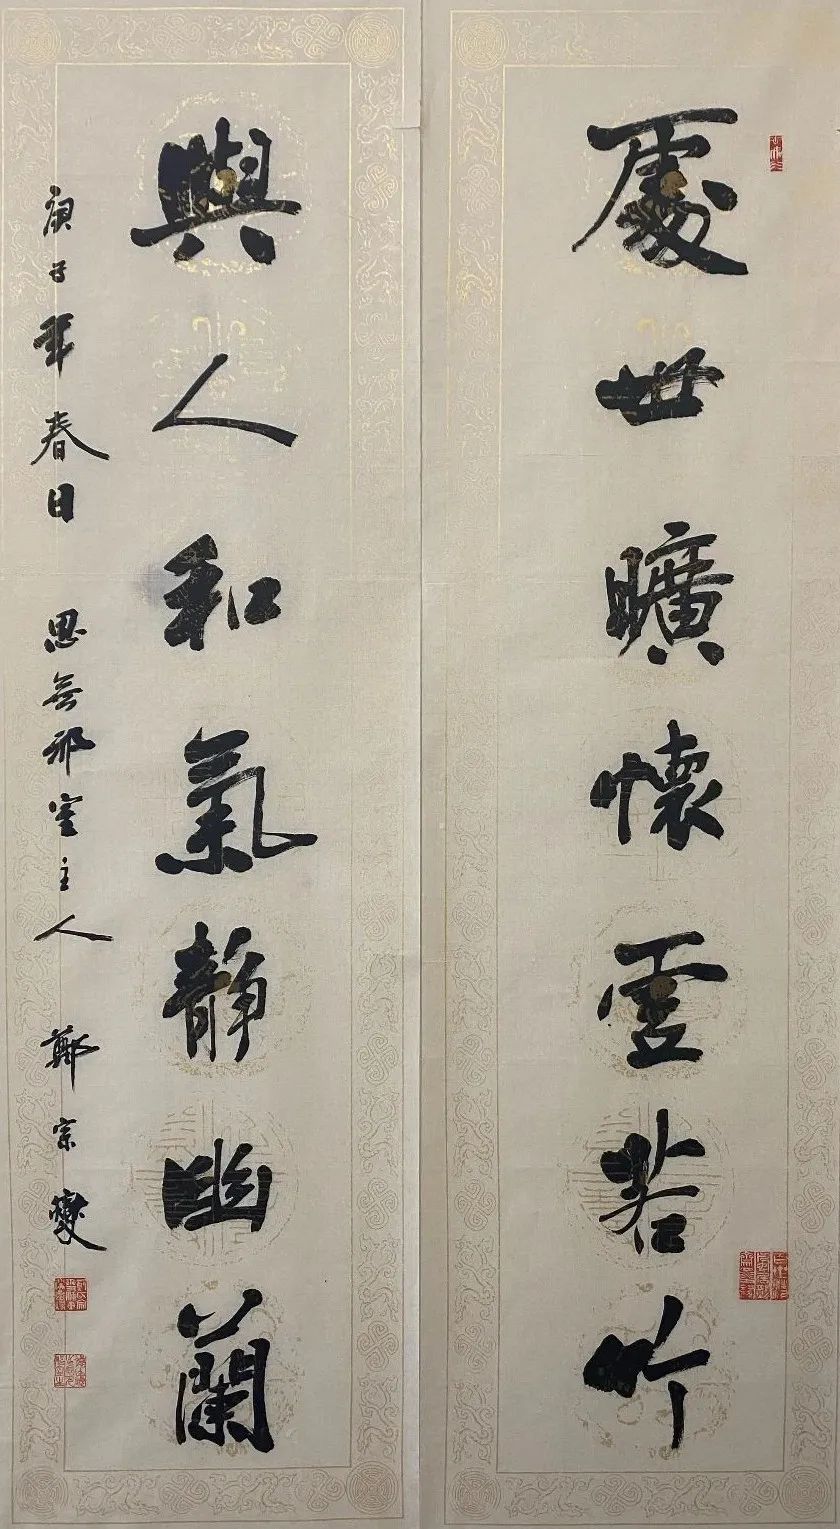 處世曠懷虛若竹
與人和氣靜幽蘭
庚子年春日 思無邪室主人 鄭宗燮